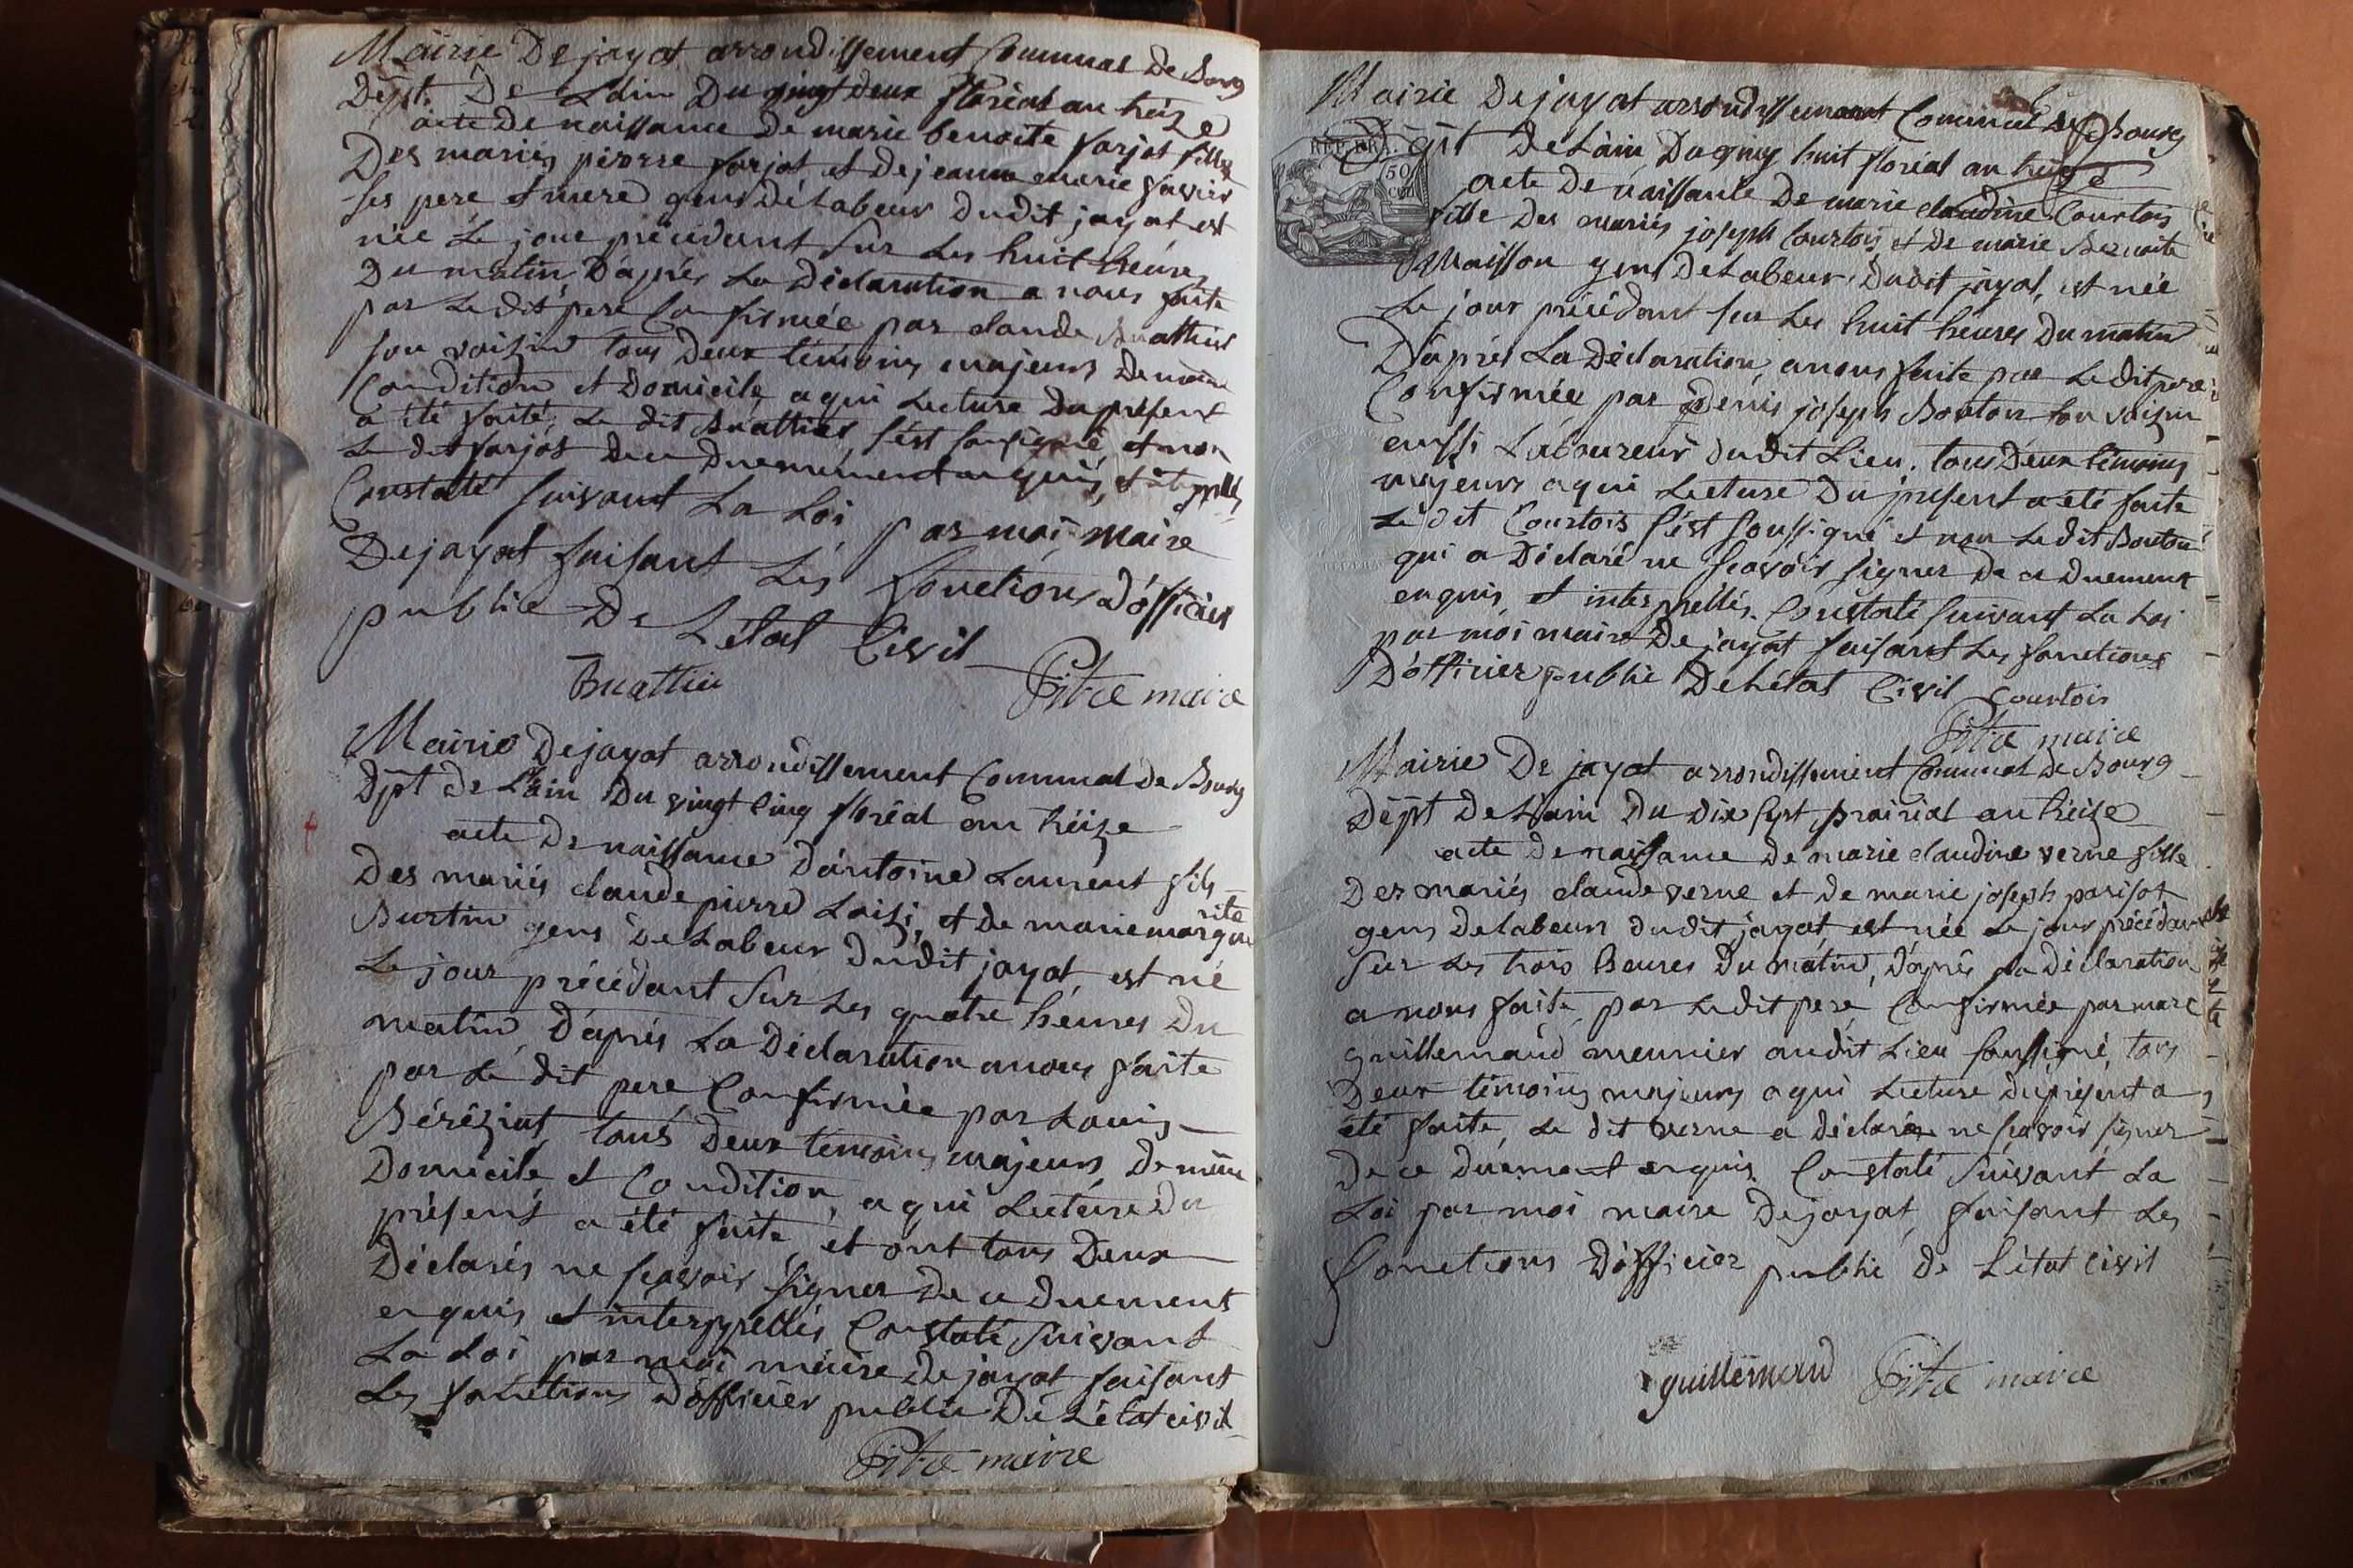 Mairie De jayat arrondissement Communal De Bourg
Dépt. De Lain Du vingt deux floréal an treize
acte De naissance De marie benoite farjot fille
Des mariés pierre farjot et De jeanne marie favier
ses pere et mere gens Dé Labeur Dudit jayat est
née Le jour précédant sur Les huit heures
Du matin, D'après La Déclaration a nous faite
par Le dit pere Confirmée par claude Buattier
son voisin tous Deux témoins majeurs De même
Condition et Domicile, a qui Lecture Du présent
a été faite, Le dit Buattier s'est soussigné, et non
Le dit farjot De ce Duemement enquis, et
Constaté suivant La Loi, par moi maire
De jayat faisant Les fonctions D'officier
public De L'état Civil
Buattier
maire
Mairie De jayat arrondissement Communal de Bourg
Dpt de L'ain Du vingt cinq floréal an tréize
acte De naissance D'antoine Laurent fils
Des mariés claude pierre Loisi, et de marie margue
rite
Burtin gens De Labeur Dudit jayat, est né
Le jour précédant sur Les quatre heures Du
matin, D'après La Déclaration a nous faite
par Le dit pere Confirmée par Louis
tous Deux témoins majeurs, De même
Domicile et Condition, a qui Lecture Du
présent a été faite, et ont tous Deux
Déclarés ne sçavoir signer De ce Duement
enquis et interppellés Constaté suivant
La Loi par moi maire De jayat faisant
Les fonctions D'officier public De L'état civil
maire
Mairie De jayat arrondissement Communal De Bourg
REP. FRA.
50
Dépt De L'ain Du huit floréal an treize
acte De naissance De marie claudine Courtois
fille Des mariés joseph Courtois et De marie Benoite
Maisson gens De Labeur Dudit jayat, est née
Le jour précédant sur Les huit heures Du matin
D'après La Déclaration, a nous faite par Le dit pere
Confirmée par Denis joseph Bouton son voisin
aussi Laboureur Dudit Lieu. tous Deux témoins
majeurs a qui Lecture Du present a été faite
Le dit Courtois s'est soussigné et non Le dit Bouton
qui a Déclaré ne sçavoir signer De ce Duement
enquis et interppellés. Constaté suivant La Loi
par moi maire De jayat faisant Les fonctions
D'officier public De L'état Civil Courtois
maire
Mairie De jayat arrondissement Communal De Bourg
Dépt De L'ain Du Dix sept prairial an treize
acte De naissance De marie claudine verne fille
Des mariés claude verne et de marie joseph parisot
gens De Labeurs Dudit jayat est née Le jour précédant
sur Les trois heures Du matin, D'après La Déclaration
a nous faite par Le dit pere, Confirmée par marc
guillemaud meunier audit Lieu soussigné, tous
Deux témoins majeurs a qui Lecture Du présent a
été faite, Le dit verne a déclaré ne sçavoir signer
De ce Duement enquis. Constaté suivant La
Loi par moi maire De jayat, faisant Les
fonctions D'officier public De L'état civil
guillemaud
maire